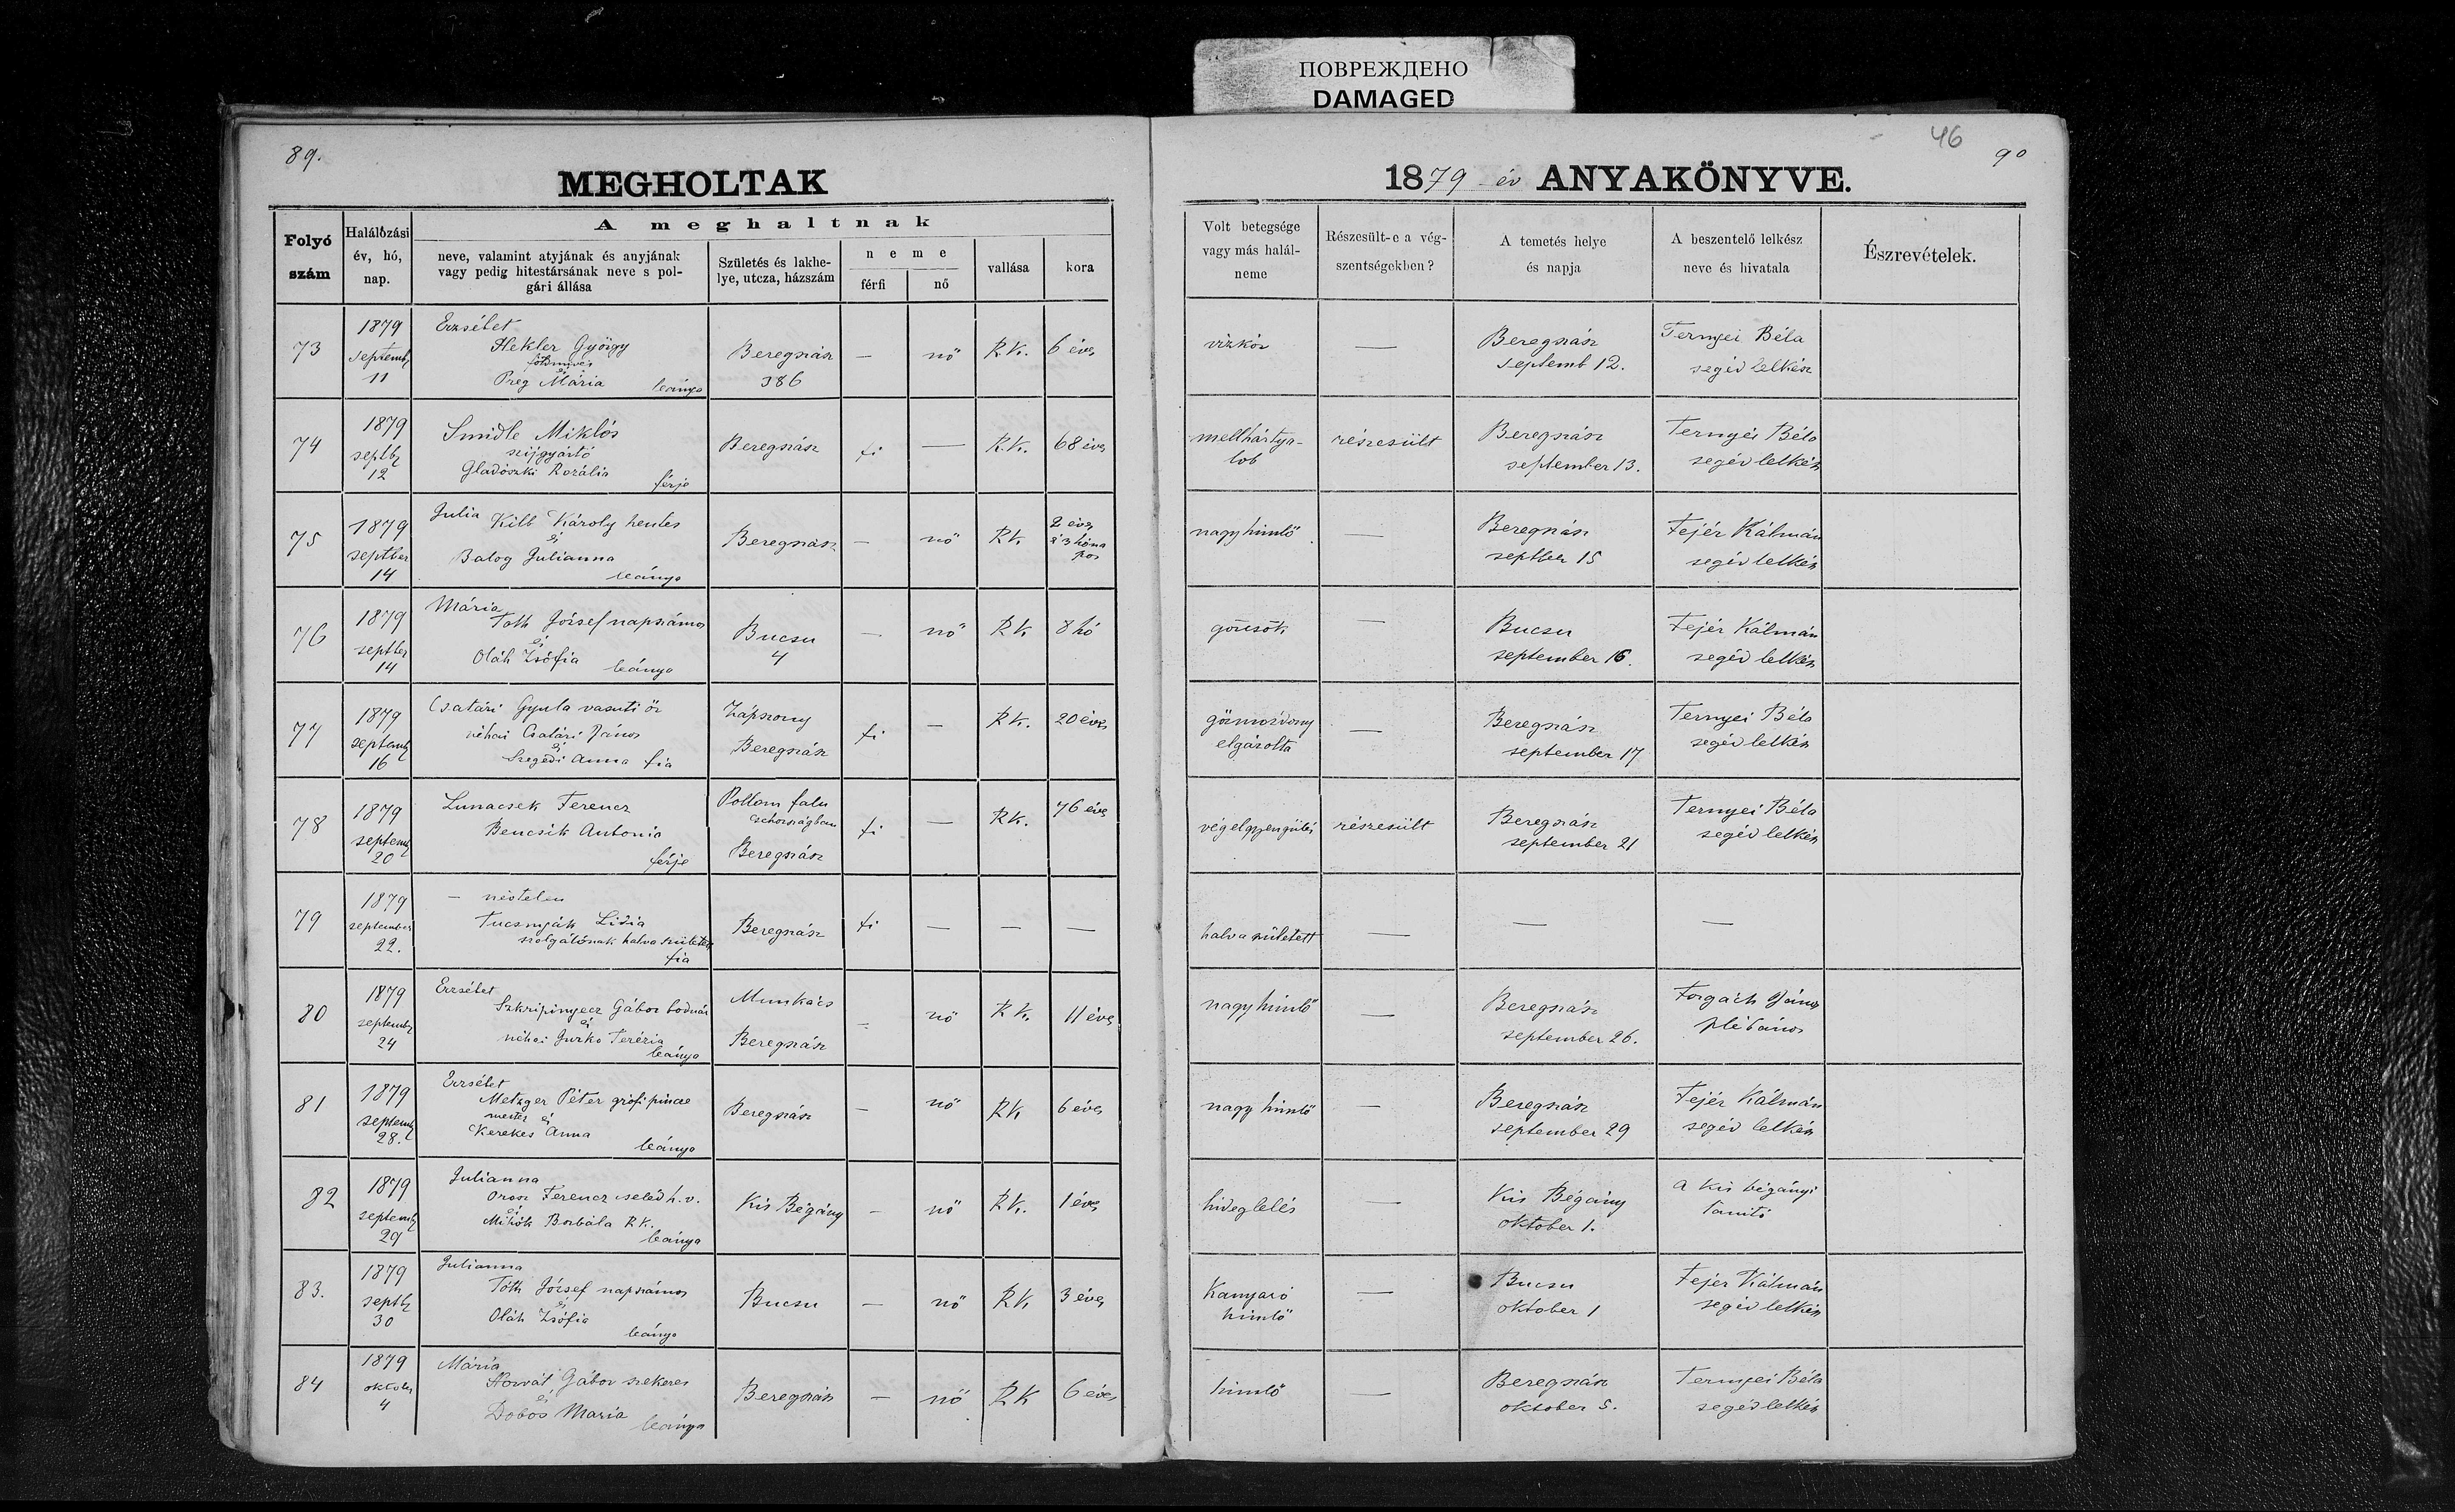 ПОВРЕЖДЕНО
DAMAGED
89.
MEGHOLTAK
Folyó szám
Halálozási év, hó, nap.
A meghaltnak
neve, valamint atyjának és anyjának
vagy pedig hitestársának neve s pol-
gári állása
Születés és lakhe-
lye, utcza, házszám
neme
férfi
nő
vallása
kora
46
90
1879 év ANYAKÖNYVE.
Volt betegsége
vagy más halál-
neme
Részesült-e a vég-
szentségekben?
A temetés helye
és napja
A beszentelő lelkész
neve és hivatala
Észrevételek.
73
1879
septemb
11
Erzsébet
Hekler György
földmüves
és
Preg Mária leánya
Beregszász
386
—
nő
R.K.
6 éves
vizkór
—
Beregszász
septemb 12.
Ternyei Béla
segéd lelkész
74
1879
septb
12
Smidle Miklós
szijgyártó
Gladószki Rozália
férje
Beregszász
fi
—
R.K.
68 éves
mellhártya-
lob
részesült
Beregszász
september 13.
Ternyei Béla
segéd lelkész
75
1879
septber
14
Julia Kilb Károly hentes
és
Balog Julianna
leánya
Beregszász
—
nő
RK.
2 éves
és 3 hóna
pos
nagy himlő
—
Beregszász
septber 15
Fejér Kálmán
segéd lelkész
76
1879
septber
14
Mária
Tóth József napszámos
és
Oláh Zsófia leánya
Bucsu
4
—
nő
RK.
8 hó
görcsök
—
Bucsu
september 16.
Fejér Kálmán
segéd lelkész
77
1879
septemb
16
Csatári Gyula vasuti őr
néhai Csatári János
és
Szegedi Anna fia
Zápszony
Beregszász
fi
—
RK.
20 éves
gőzmozdony
elgázolta
—
Beregszász
september 17
Ternyei Béla
segéd lelkész
78
1879
septemb
20
Lunacsek Ferencz
Bencsik Antonia
férje
falu
Csehországban
Beregszász
fi
—
RK.
76 éves
végelgyengülés
részesült
Beregszász
september 21
Ternyei Béla
segéd lelkész
79
1879
september
22.
— névtelen
Tucsnyák Lidia
szolgálónak halva született
fia
Beregszász
fi
—
—
—
halva született
—
—
—
80
1879
septemb
24
Erzsébet
Szkripinyecz Gábor bodnár
és
néhai Gurko Terézia
leánya
Munkács
Beregszász
—
nő
RK.
11 éves
nagy himlő
—
Beregszász
september 26.
Forgách János
plébános
81
1879
septemb
28.
Erzsébet
Metzger Péter grófi pincze
mester és
Kerekes Anna
leánya
Beregszász
—
nő
RK
6 éves
nagy himlő
—
Beregszász
september 29
Fejér Kálmán
segéd lelkész
82
1879
septemb
29
Julianna
Orosz Ferencz cseléd h.v.
és
Mihók Borbála RK.
leánya
Kis Bégány
—
nő
RK.
1 éves
hideglelés
—
Kis Bégány
oktober 1.
a kis bégányi
tanító
83.
1879
septb
30
Julianna
Tóth József napszámos
és
Oláh Zsófia
leánya
Bucsu
—
nő
RK
3 éves
Kanyaró
himlő
—
Bucsu
oktober 1
Fejér Kálmán
segéd lelkész
84
1879
oktober
4
Mária
Horvát Gábor szekeres
és
Dobos Maria
leánya
Beregszász
—
nő
RK
6 éves
himlő
—
Beregszász
oktober 5.
Ternyei Béla
segéd lelkész